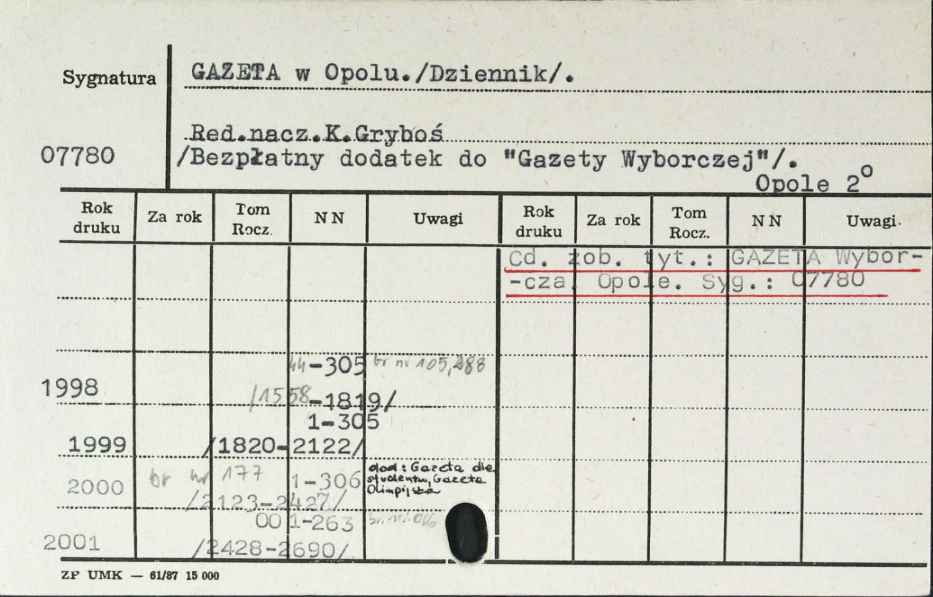 Sygnatura
GAZETA w Opolu./Dziennik/.
Red.nacz.K.Gryboś
07780
/Bezpłatny dodatek do "Gazety Wyborczej"/.
Opole 2°
Rok druku Za rok Tom Rocz. NN Uwagi Rok druku Za rok Tom Rocz. NN Uwagi.
Cd. zob. tyt.: GAZETA Wybor-
-cza. Opole. Syg.: 07780
44-305 br nr 105, 288
1998
/1558-1819/
1-305
1999 /1820-2122/
dod: Gazeta dla
studentów, Gazeta
Olimpijska
2000 br nr 177 1-306
/2123-2427/
001-263 br. nr
2001 /2428-2690/
ZP UMK — 61/87 15 000